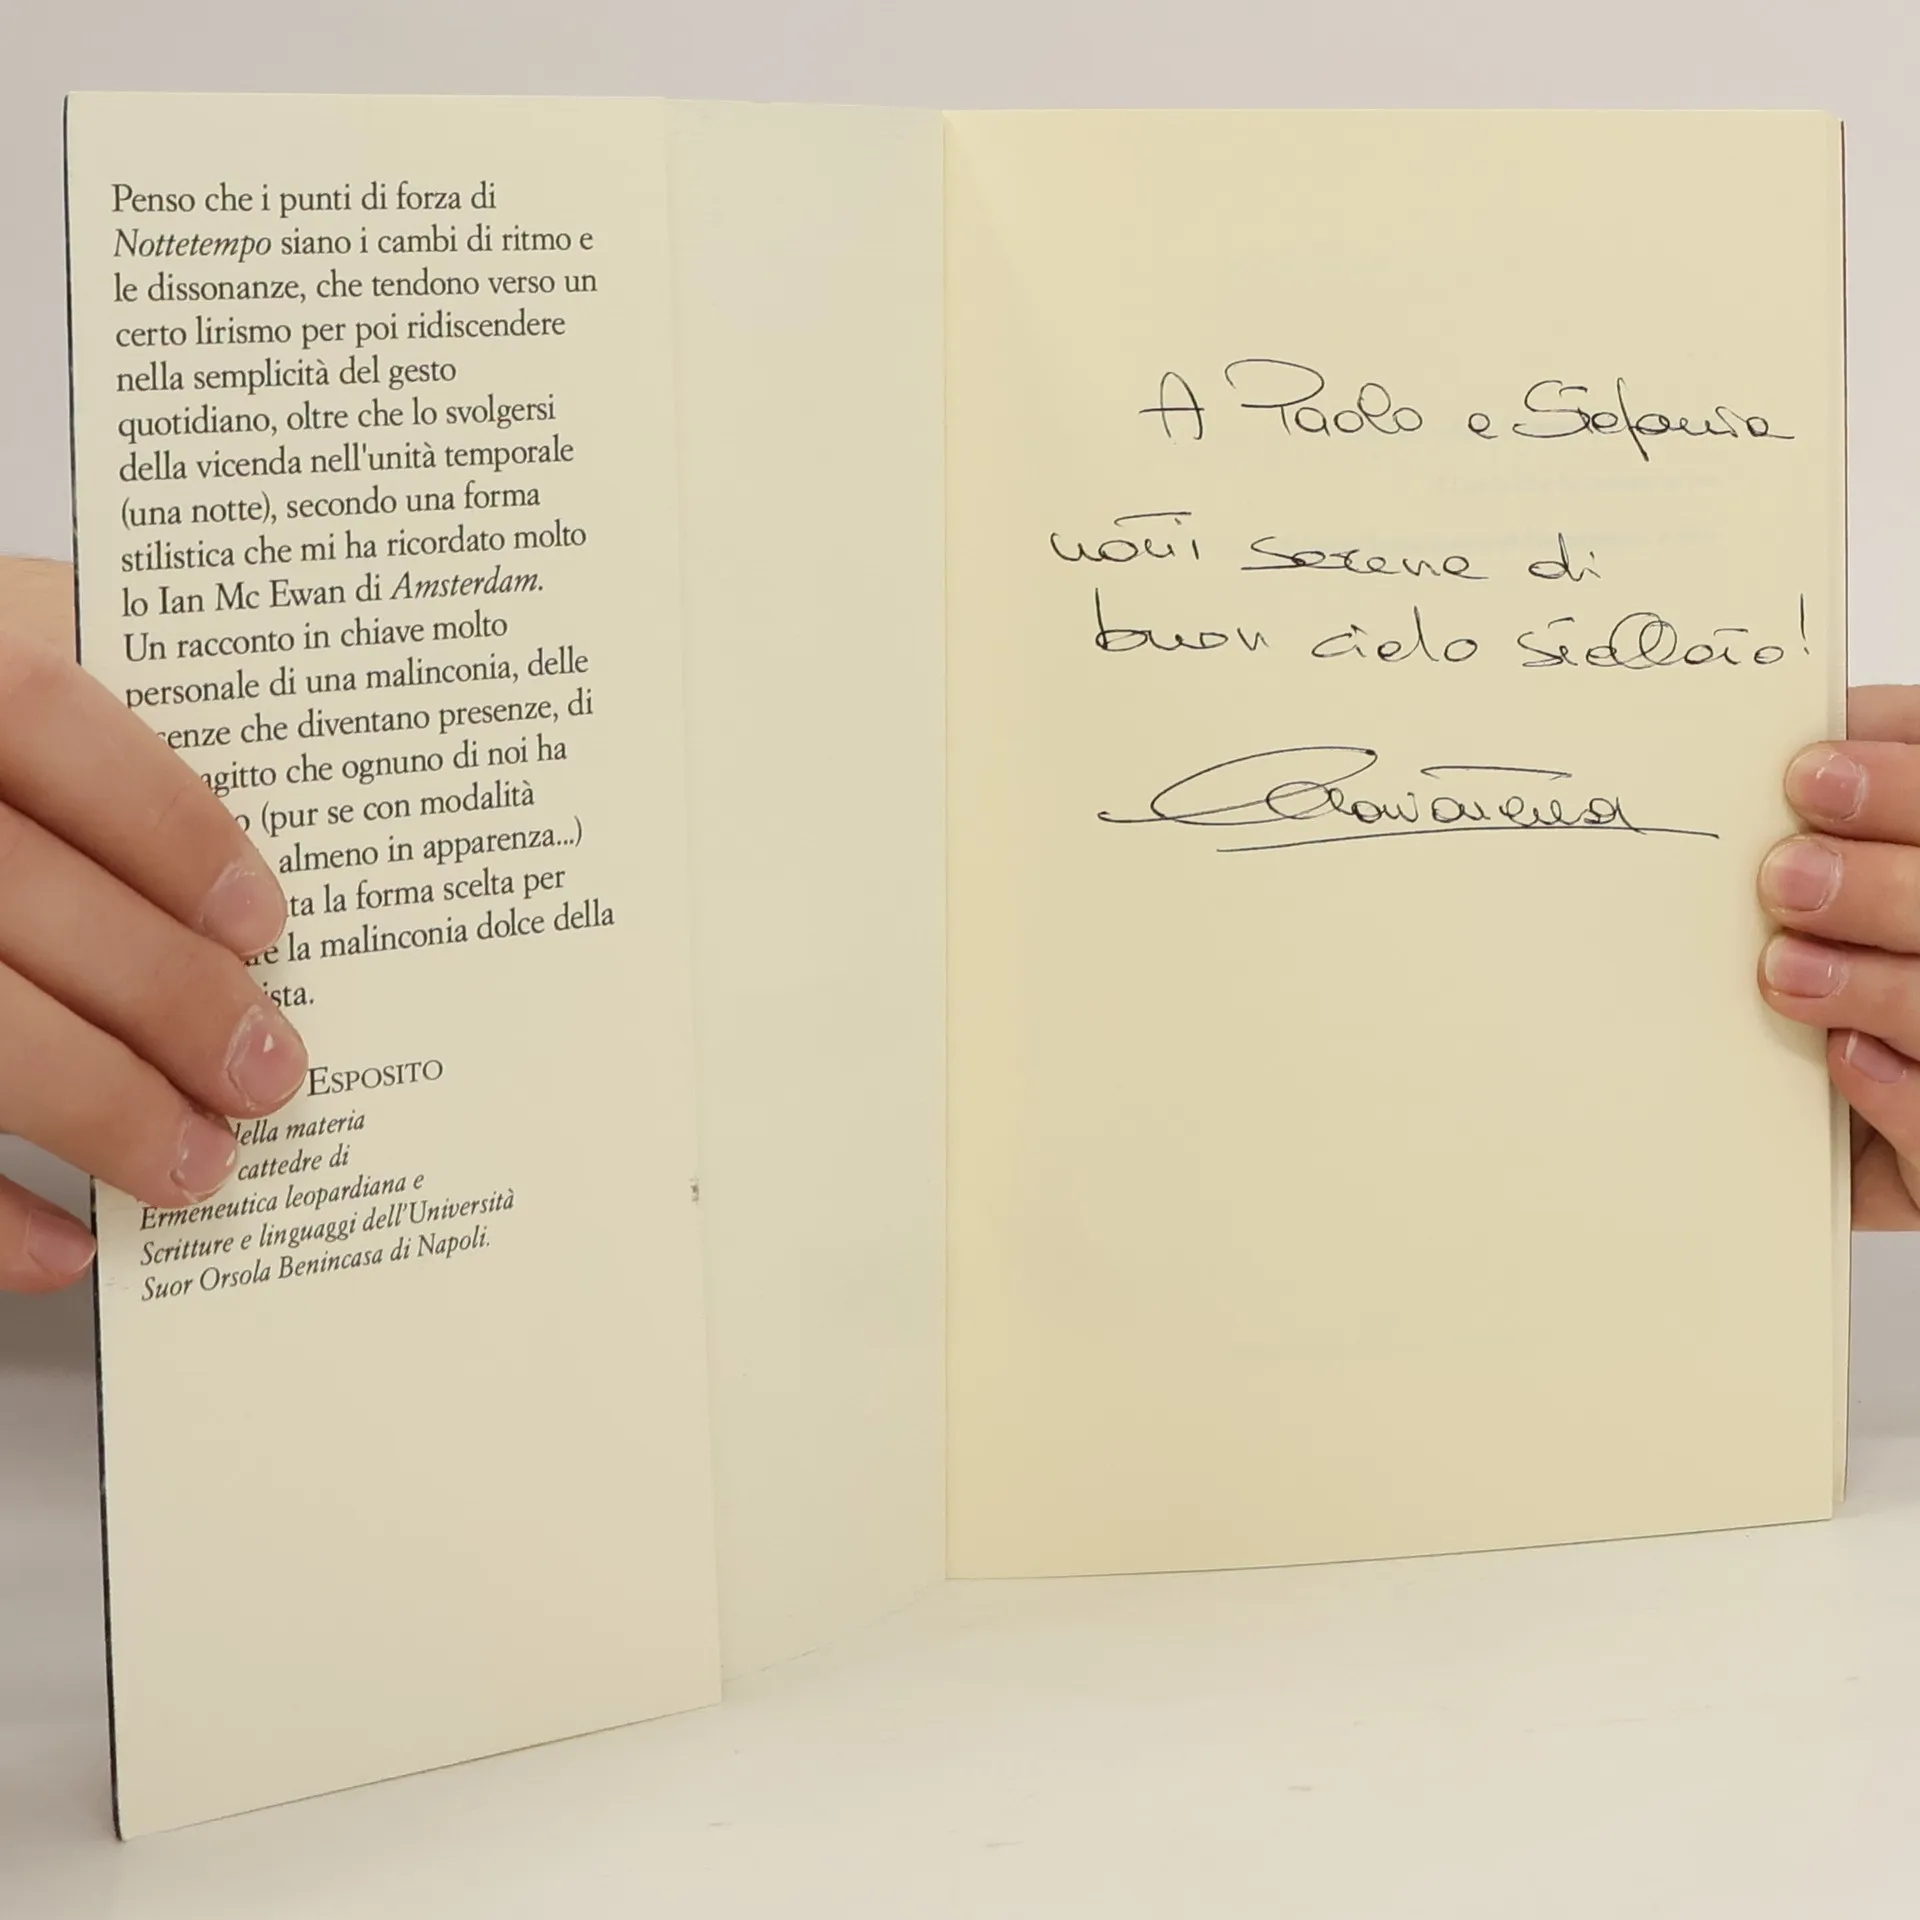 Penso che i punti di forza di
Nottetempo siano i cambi di ritmo e
le dissonanze, che tendono verso un
certo lirismo per poi ridiscendere
nella semplicità del gesto
quotidiano, oltre che lo svolgersi
della vicenda nell'unità temporale
(una notte), secondo una forma
stilistica che mi ha ricordato molto
lo Ian Mc Ewan di Amsterdam.
Un racconto in chiave molto
personale di una malinconia, delle
che diventano presenze, di
che ognuno di noi ha
(pur se con modalità
almeno in apparenza...)
la forma scelta per
la malinconia dolce della
ESPOSITO
della materia
cattedre di
Ermeneutica leopardiana e
Scritture e linguaggi dell'Università
Suor Orsola Benincasa di Napoli.
A Paolo e Stefania
notti serene di
buon cielo stellato!